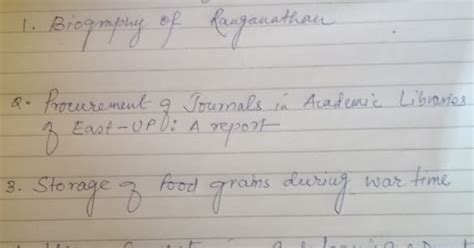 1. Biography of Ranganathan
2. Procurement of Journals in Academic Libraries
of East-UP: A report
3. Storage of food grains during war time